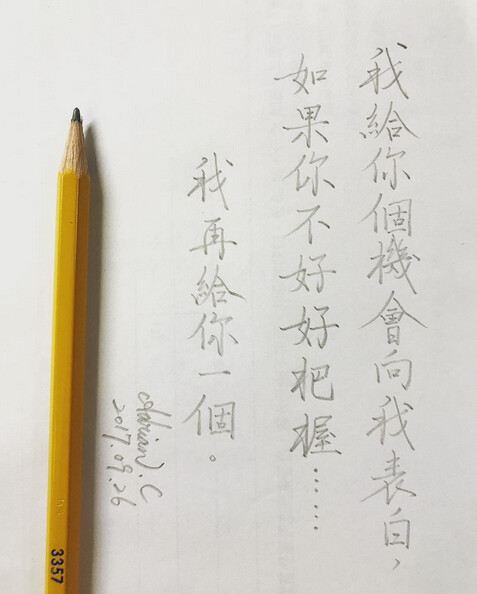 我給你個機會向我表白，
如果你不好好把握……
我再給你一個。
2017.09.26
3357